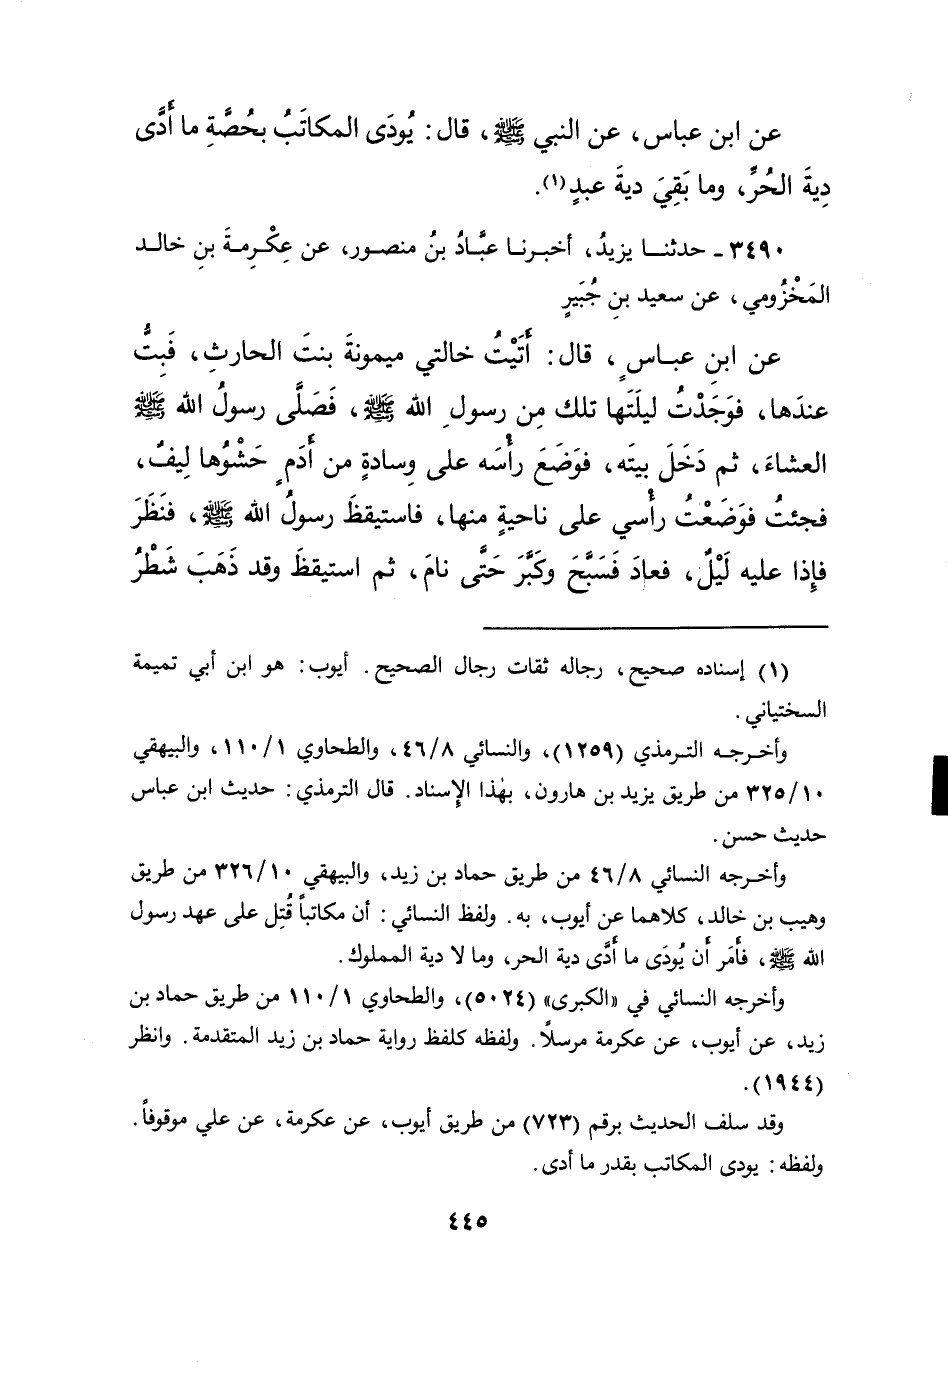 عن ابن عباس، عن النبي ﷺ، قال: يُودَى المكاتَبُ بحُصَّةِ ما أَدَّى
دِيةَ الحُرِّ، وما بَقِيَ ديةَ عبدٍ(١).
٣٤٩٠ ـ حدثنا يزيدُ، أخبرنا عبَّادُ بنُ منصور، عن عِكْرِمةَ بنِ خالد
المَخْزُومي، عن سعيد بنِ جُبَيرٍ
عن ابنِ عباسٍ، قال: أَتَيْتُ خالتي ميمونةَ بنتَ الحارثِ، فَبِتُّ
عندَها، فوَجَدْتُ ليلَتَها تلك مِن رسولِ الله ﷺ، فَصَلَّى رسولُ الله ﷺ
العشاءَ، ثم دَخَلَ بيتَه، فوَضَعَ رأْسَه على وِسادةٍ من أَدَمٍ حَشْوُها لِيفٌ،
فجئتُ فوَضَعْتُ رأْسي على ناحيةٍ منها، فاستيقظَ رسولُ الله ﷺ، فنَظَرَ
فإِذا عليه لَيْلٌ، فعادَ فَسَبَّحَ وكَبَّرَ حَتَّى نامَ، ثم استيقظَ وقد ذَهَبَ شَطْرُ
(١) إسناده صحيح، رجاله ثقات رجال الصحيح. أيوب: هو ابن أبي تميمة
السختياني.
وأخرجه الترمذي (١٢٥٩)، والنسائي ٤٦/٨، والطحاوي ١١٠/١، والبيهقي
٣٢٥/١٠ من طريق يزيد بن هارون، بهٰذا الإِسناد. قال الترمذي: حديث ابن عباس
حديث حسن.
وأخرجه النسائي ٤٦/٨ من طريق حماد بن زيد، والبيهقي ٣٢٦/١٠ من طريق
وهيب بن خالد، كلاهما عن أيوب، به. ولفظ النسائي: أن مكاتباً قُتِل على عهد رسول
الله ﷺ، فأَمَر أَن يُودَى ما أَدَّى دية الحر، وما لا دية المملوك.
وأخرجه النسائي في «الكبرى» (٥٠٢٤)، والطحاوي ١١٠/١ من طريق حماد بن
زيد، عن أيوب، عن عكرمة مرسلاً. ولفظه كلفظ رواية حماد بن زيد المتقدمة. وانظر
(١٩٤٤).
وقد سلف الحديث برقم (٧٢٣) من طريق أيوب، عن عكرمة، عن علي موقوفاً.
ولفظه: يودى المكاتب بقدر ما أدى.
٤٤٥